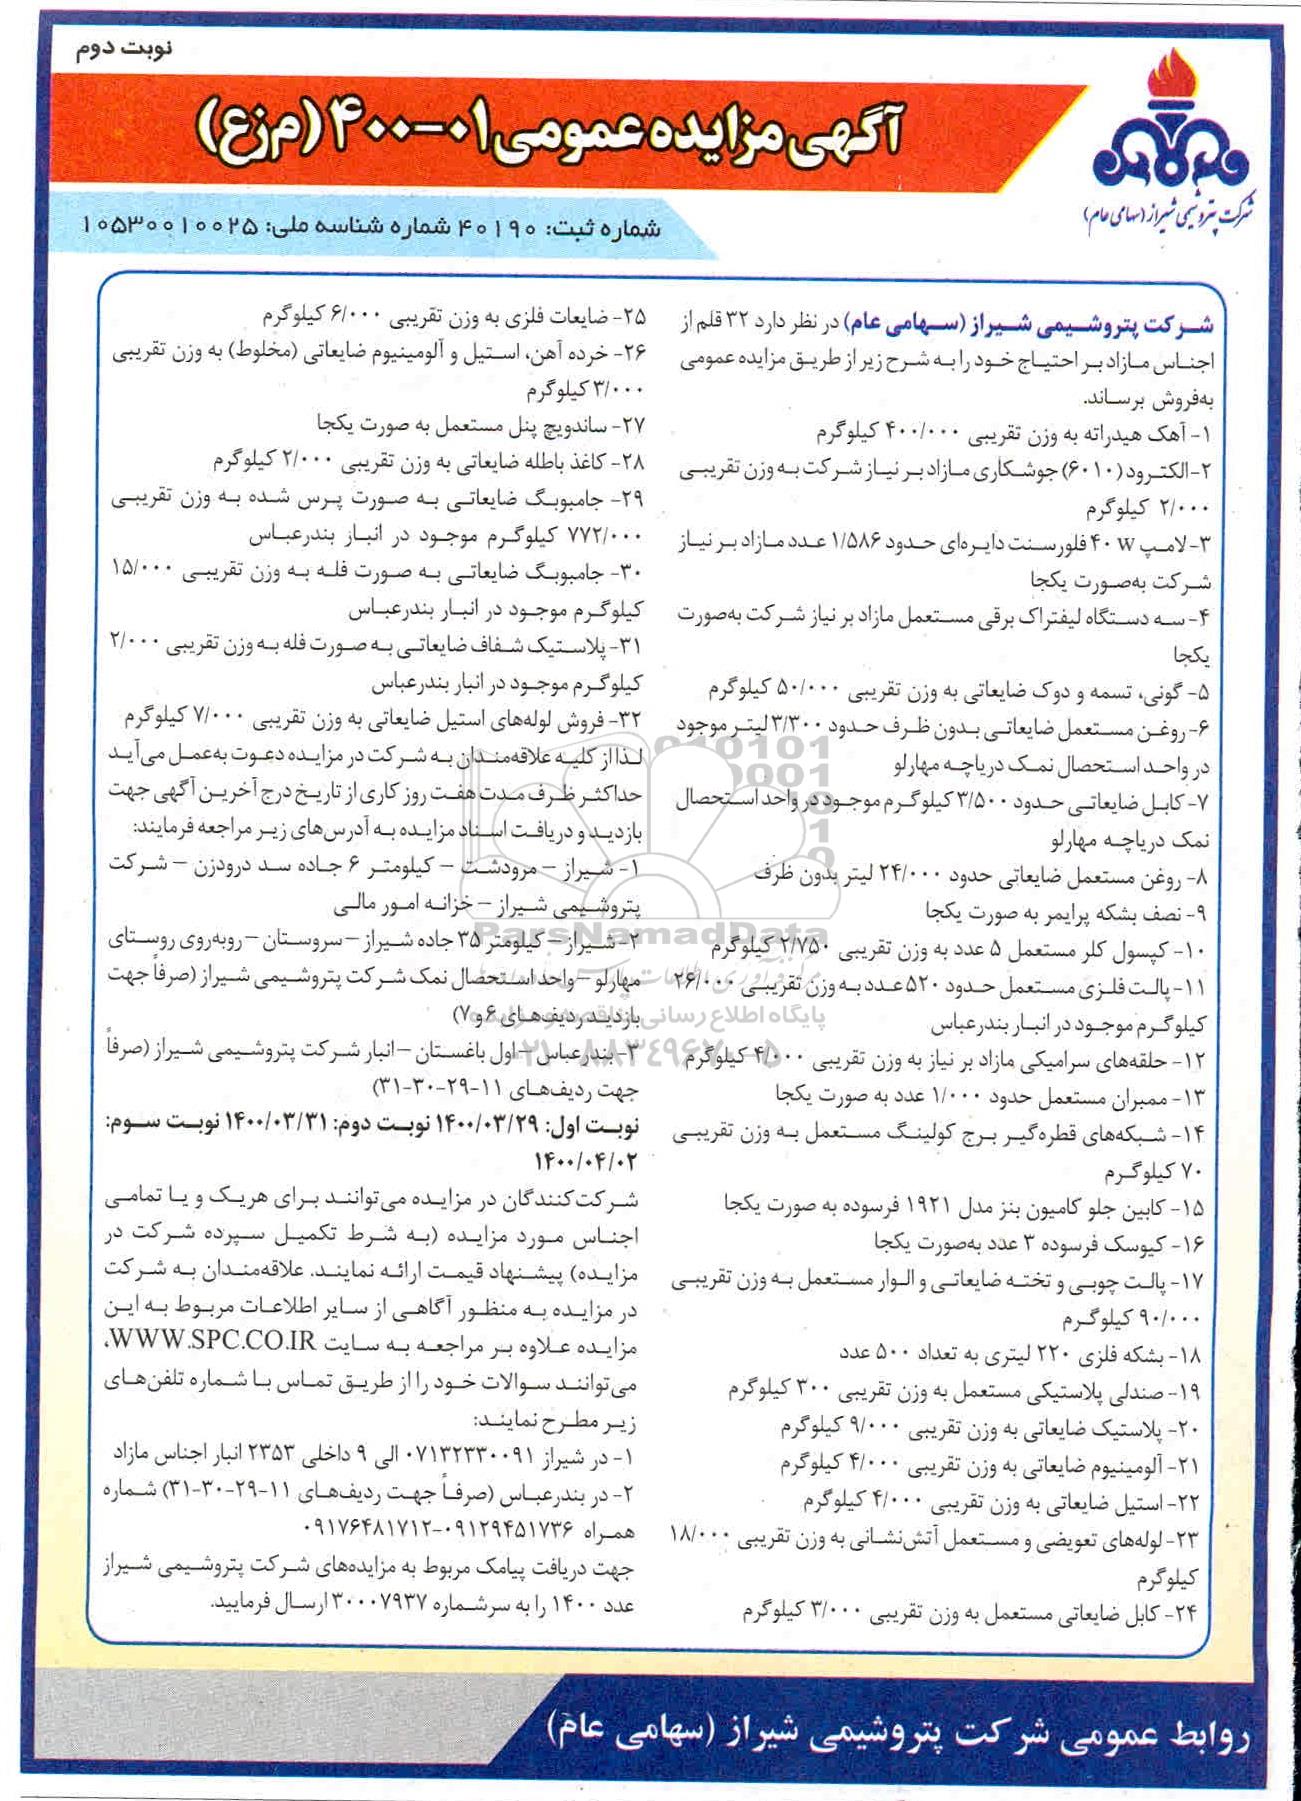 نوبت دوم
آگهی مزایده عمومی ۰۱-۴۰۰ (م زع)
شرکت پتروشیمی شیراز (سهامی عام)
شماره ثبت: ۴۰۱۹۰ شماره شناسه ملی: ۱۰۵۳۰۰۱۰۰۲۵
شرکت پتروشیمی شیراز (سهامی عام) در نظر دارد ۳۲ قلم از
اجناس مازاد بر احتیاج خود را به شرح زیر از طریق مزایده عمومی
به‌فروش برساند.
۱- آهک هیدراته به وزن تقریبی ۴۰۰/۰۰۰ کیلوگرم
۲-الکترود (۶۰۱۰) جوشکاری مازاد بر نیاز شرکت به وزن تقریبی
۲/۰۰۰ کیلوگرم
۳-لامپ ۴۰ W فلورسنت دایره‌ای حدود ۱/۵۸۶ عدد مازاد بر نیاز
شرکت به‌صورت یکجا
۴- سه دستگاه لیفتراک برقی مستعمل مازاد بر نیاز شرکت به‌صورت
یکجا
۵- گونی، تسمه و دوک ضایعاتی به وزن تقریبی ۵۰/۰۰۰ کیلوگرم
۶- روغن مستعمل ضایعاتی بدون ظرف حدود ۳/۳۰۰ لیتر موجود
در واحد استحصال نمک دریاچه مهارلو
۷- کابل ضایعاتی حدود ۳/۵۰۰ کیلوگرم موجود در واحد استحصال
نمک دریاچه مهارلو
۸- روغن مستعمل ضایعاتی حدود ۲۴/۰۰۰ لیتر بدون ظرف
۹- نصف بشکه پرایمر به صورت یکجا
۱۰- کپسول کلر مستعمل ۵ عدد به وزن تقریبی ۲/۷۵۰ کیلوگرم
۱۱- پالت فلزی مستعمل حدود ۵۲۰ عدد به وزن تقریبی ۲۶/۰۰۰
کیلوگرم موجود در انبار بندرعباس
۱۲- حلقه‌های سرامیکی مازاد بر نیاز به وزن تقریبی ۴/۰۰۰ کیلوگرم
۱۳- ممبران مستعمل حدود ۱/۰۰۰ عدد به صورت یکجا
۱۴- شبکه‌های قطره‌گیر برج کولینگ مستعمل به وزن تقریبی
۷۰ کیلوگرم
۱۵- کابین جلو کامیون بنز مدل ۱۹۲۱ فرسوده به صورت یکجا
۱۶- کیوسک فرسوده ۳ عدد به‌صورت یکجا
۱۷- پالت چوبی و تخته ضایعاتی و الوار مستعمل به وزن تقریبی
۹۰/۰۰۰ کیلوگرم
۱۸- بشکه فلزی ۲۲۰ لیتری به تعداد ۵۰۰ عدد
۱۹- صندلی پلاستیکی مستعمل به وزن تقریبی ۳۰۰ کیلوگرم
۲۰- پلاستیک ضایعاتی به وزن تقریبی ۹/۰۰۰ کیلوگرم
۲۱- آلومینیوم ضایعاتی به وزن تقریبی ۴/۰۰۰ کیلوگرم
۲۲- استیل ضایعاتی به وزن تقریبی ۴/۰۰۰ کیلوگرم
۲۳- لوله‌های تعویضی و مستعمل آتش‌نشانی به وزن تقریبی ۱۸/۰۰۰
کیلوگرم
۲۴- کابل ضایعاتی مستعمل به وزن تقریبی ۳/۰۰۰ کیلوگرم
۲۵- ضایعات فلزی به وزن تقریبی ۶/۰۰۰ کیلوگرم
۲۶- خرده آهن، استیل و آلومینیوم ضایعاتی (مخلوط) به وزن تقریبی
۳/۰۰۰ کیلوگرم
۲۷- ساندویچ پنل مستعمل به صورت یکجا
۲۸- کاغذ باطله ضایعاتی به وزن تقریبی ۲/۰۰۰ کیلوگرم
۲۹- جامبوبگ ضایعاتی به صورت پرس شده به وزن تقریبی
۷۷۲/۰۰۰ کیلوگرم موجود در انبار بندرعباس
۳۰- جامبوبگ ضایعاتی به صورت فله به وزن تقریبی ۱۵/۰۰۰
کیلوگرم موجود در انبار بندرعباس
۳۱- پلاستیک شفاف ضایعاتی به صورت فله به وزن تقریبی ۲/۰۰۰
کیلوگرم موجود در انبار بندرعباس
۳۲- فروش لوله‌های استیل ضایعاتی به وزن تقریبی ۷/۰۰۰ کیلوگرم
لذا از کلیه علاقه‌مندان به شرکت در مزایده دعوت به‌عمل می‌آید
حداکثر ظرف مدت هفت روز کاری از تاریخ درج آخرین آگهی جهت
بازدید و دریافت اسناد مزایده به آدرس‌های زیر مراجعه فرمایند:
۱- شیراز – مرودشت – کیلومتر ۶ جاده سد درودزن – شرکت
پتروشیمی شیراز – خزانه امور مالی
۲-شیراز – کیلومتر ۳۵ جاده شیراز – سروستان – روبه‌روی روستای
مهارلو – واحد استحصال نمک شرکت پتروشیمی شیراز (صرفاً جهت
بازدید ردیف‌های ۶ و ۷)
۳- بندرعباس – اول باغستان – انبار شرکت پتروشیمی شیراز (صرفاً
جهت ردیف‌های ۱۱-۲۹-۳۰-۳۱)
نوبت اول: ۱۴۰۰/۰۳/۲۹ نوبت دوم: ۱۴۰۰/۰۳/۳۱ نوبت سوم:
۱۴۰۰/۰۴/۰۲
شرکت‌کنندگان در مزایده می‌توانند برای هریک و یا تمامی
اجناس مورد مزایده (به شرط تکمیل سپرده شرکت در
مزایده) پیشنهاد قیمت ارائه نمایند. علاقه‌مندان به شرکت
در مزایده به منظور آگاهی از سایر اطلاعات مربوط به این
مزایده علاوه بر مراجعه به سایت WWW.SPC.CO.IR،
می‌توانند سوالات خود را از طریق تماس با شماره تلفن‌های
زیر مطرح نمایند:
۱- در شیراز ۰۷۱۳۲۳۳۰۰۹۱ الی ۹ داخلی ۲۳۵۳ انبار اجناس مازاد
۲- در بندرعباس (صرفاً جهت ردیف‌های ۱۱-۲۹-۳۰-۳۱) شماره
همراه ۰۹۱۲۹۴۵۱۷۳۶-۰۹۱۷۶۴۸۱۷۱۲
جهت دریافت پیامک مربوط به مزایده‌های شرکت پتروشیمی شیراز
عدد ۱۴۰۰ را به سرشماره ۳۰۰۰۷۹۳۷ ارسال فرمایید.
ParsNamadData
پایگاه اطلاع رسانی
۰۲۱-۸۸۳۴۹۶۷۰-۵
روابط عمومی شرکت پتروشیمی شیراز (سهامی عام)